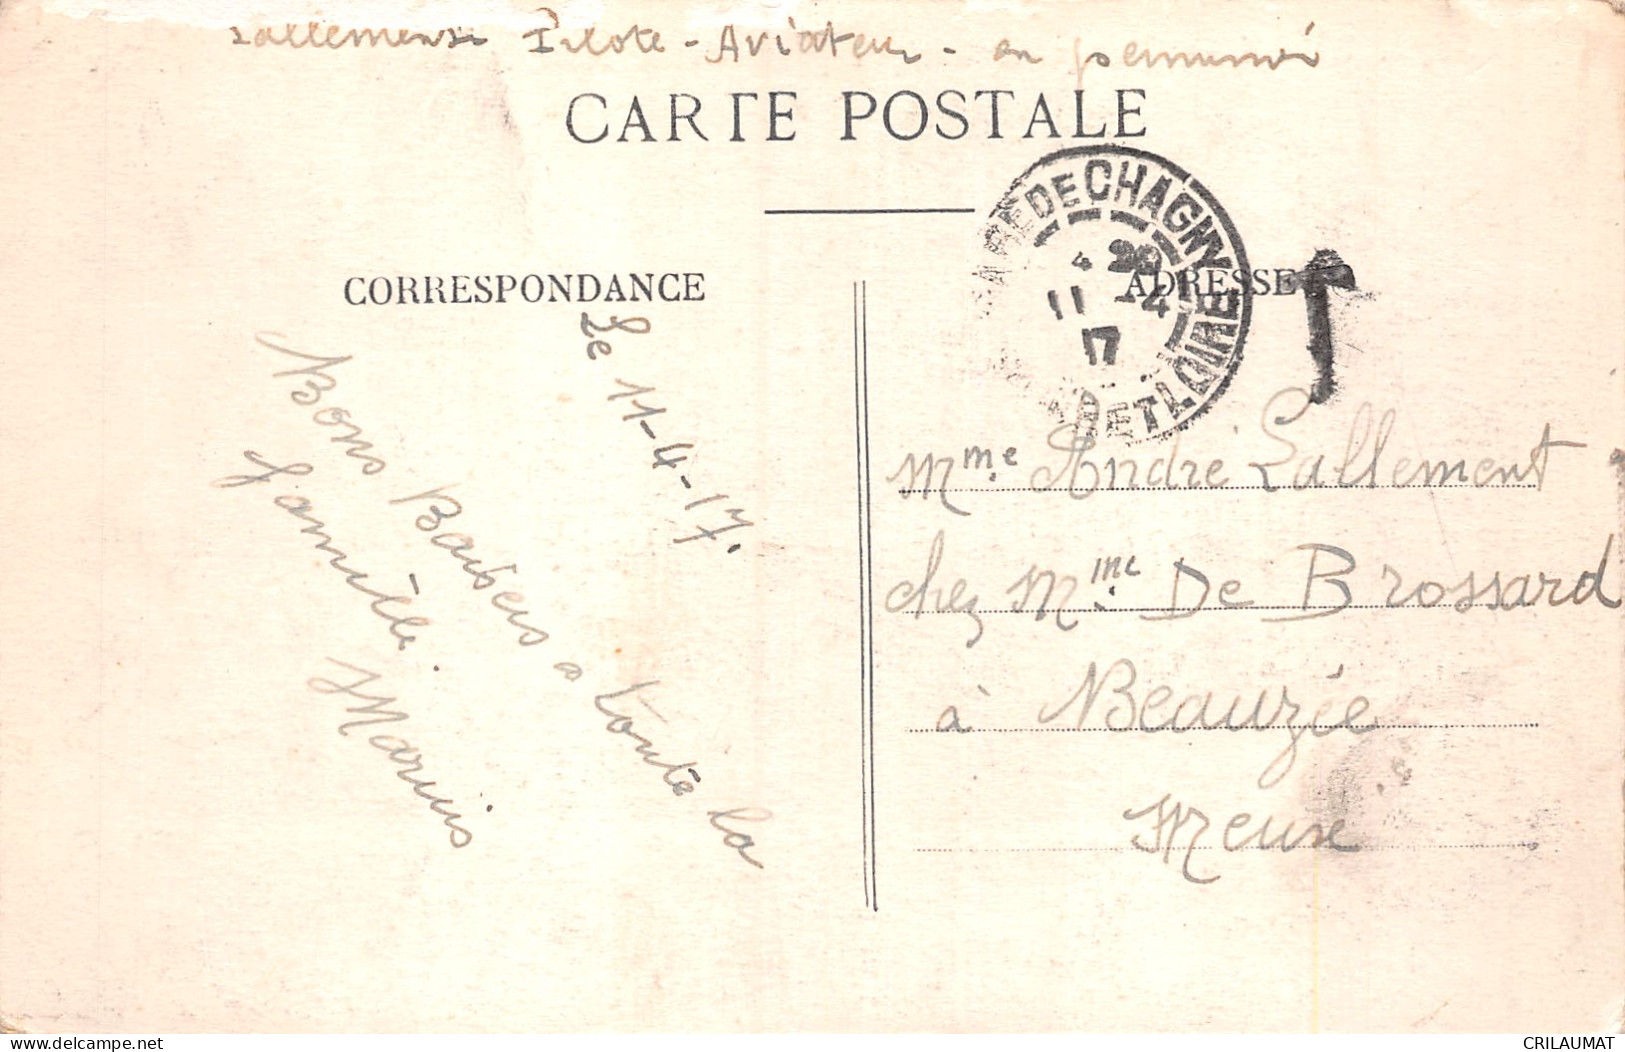 Lallement Pilote-Aviateur - en
CARTE POSTALE
GARE DE CHAGNY
4 20
11 -4
17
ET LOIRE
CORRESPONDANCE
ADRESSE
T
Le 11-4-17.
Bons Baisers a toute la
famille.
Marius
Mme André Lallement
chez Mme De Brossard
à Beauzée
Meuse
www.delcampe.net
CRILAUMAT